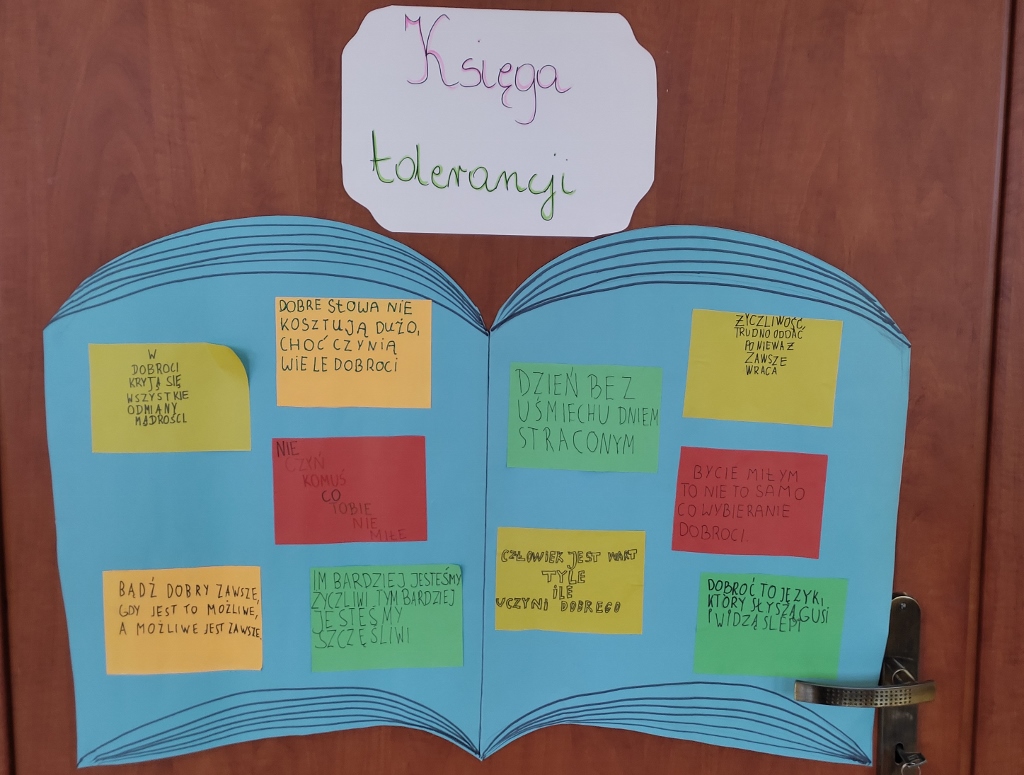 Księga
tolerancji
W
DOBROCI
KRYJĄ SIĘ
WSZYSTKIE
ODMIANY
MĄDROŚCI
DOBRE SŁOWA NIE
KOSZTUJĄ DUŻO,
CHOĆ CZYNIĄ
WIELE DOBROCI
NIE
CZYŃ
KOMUŚ
CO
TOBIE
NIE
MIŁE
BĄDŹ DOBRY ZAWSZE,
GDY JEST TO MOŻLIWE,
A MOŻLIWE JEST ZAWSZE,
IM BARDZIEJ JESTEŚMY
ŻYCZLIWI TYM BARDZIEJ
JESTEŚMY
SZCZĘŚLIWI
DZIEŃ BEZ
UŚMIECHU DNIEM
STRACONYM
ŻYCZLIWOŚĆ,
TRUDNO ODDAĆ
PONIEWAŻ
ZAWSZE
WRACA
BYCIE MIŁYM
TO NIE TO SAMO
CO WYBIERANIE
DOBROCI.
CZŁOWIEK JEST WART
TYLE
ILE
UCZYNI DOBREGO
DOBROĆ TO JĘZYK,
KTÓRY SŁYSZĄ GŁUSI
I WIDZĄ ŚLEPI